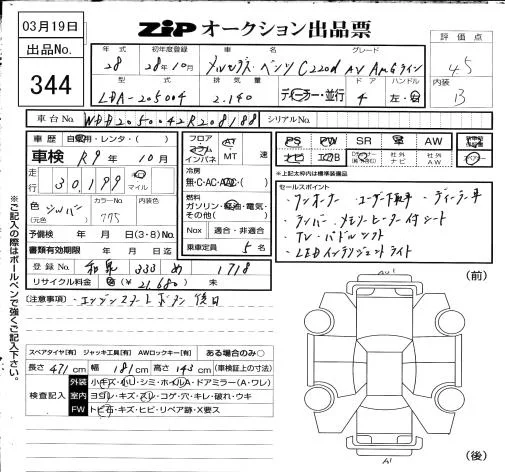 03月19日
ZIP オークション出品票
出品No.
344
評価点
4.5
内装
B
年式 初年度登録 車名 グレード
28 28年10月 メルセデス・ベンツ C220d AV AMGライン
型式 排気量 ドア ハンドル
LDA-205004 2.140 ディーラー・並行 4 左・右
車台No. WDD2050042R208188 シリアルNo.
車歴 自家用・レンタ・( )
車検 R9年 10月
走行 30,199 マイル
色(元色) シルバー カラーNo. 775 内装色
予備検 年 月 日(3・8)No.
書類有効期限 年 月 日迄
フロア
インパネ
AT
・MT 速
冷房
無・C・AC・AAC・( )
燃料
ガソリン・軽油・電気・
その他( )
Nox 適合・非適合
乗車定員 5名
PS PW SR 革 AW
ナビ エアB 社外ナビ 社外AW
*上記太枠内は標準装備品
セールスポイント
・ワンオーナー ・ユーザー下取車 ・ディーラー車
・メモリーヒーター付シート
・TV ・パドルシフト
・LEDインテリジェントライト
登録No. 333 め 1718
リサイクル料金 (¥21,680) 未
(注意事項) ・エンジンスタートボタン後日
スペアタイヤ[有] ジャッキ工具[有] AWロックキー[有] ある場合のみ○
長さ 471cm 幅 181cm 高さ 143cm (車検証上の寸法)
検査記入
外装 小キズ・小U・シミ・ホイルA・ドアミラー(A・ワレ)
室内 ヨゴレ・キズ・スレ・コゲ・穴・キレ・破れ・ウキ
FW トビ石・キズ・ヒビ・リペア跡・X要ス
※ご記入の際はボールペンで強くご記入下さい。
(前)
(後)